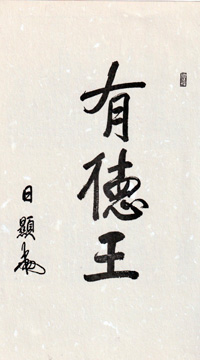 有徳王
日顯